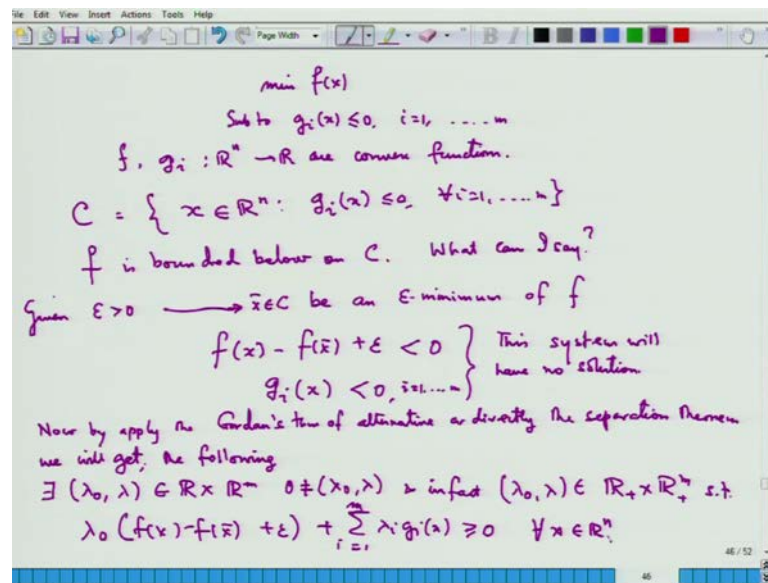 File Edit View Insert Actions Tools Help
Page Width B I
min f(x)
Sub to gᵢ(x) ≤ 0, i=1, .... m
f, gᵢ : ℝⁿ → ℝ are convex function.
C = { x ∈ ℝⁿ : gᵢ(x) ≤ 0, ∀ i=1, .... m }
f is bounded below on C. What can I say?
Given ε>0 → x̄ ∈ C be an ε-minimum of f
f(x) - f(x̄) + ε < 0 } This system will
gᵢ(x) < 0, i=1....m } have no solution
Now by apply the Gordan's thm of alternative or directly the separation theorem
we will get, the following
∃ (λ₀, λ) ∈ ℝ × ℝᵐ 0 ≠ (λ₀, λ) & infact (λ₀, λ) ∈ ℝ₊ × ℝ₊ᵐ s.t.
λ₀ (f(x) - f(x̄) + ε) + ∑ᵢ₌₁ᵐ λᵢ gᵢ(x) ≥ 0 ∀ x ∈ ℝⁿ.
46 / 52
46